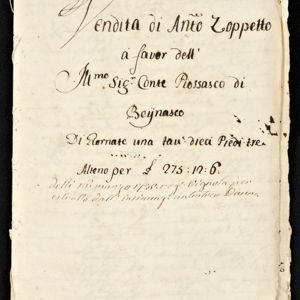 Vendita di Ant.º Zoppetto
á favor dell'
Ill.mo Sig.r Conte Piossasco di
Beÿnasco
Di Giornate una tau.e dieci Piedi tre
Alteno per £ 275: 10: 6.
delli 16 marzo 1730